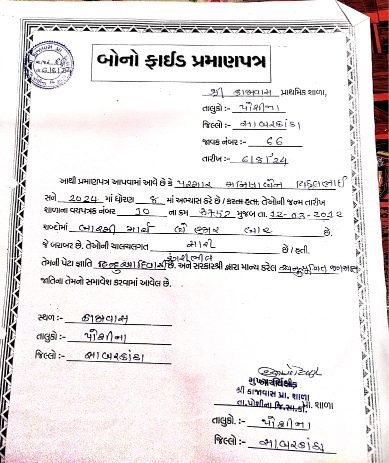 બોનો ફાઈડ પ્રમાણપત્ર
શ્રી કાજાવાસ પ્રાથમિક શાળા,
તાલુકો :- પોશીના
જિલ્લો :- સાબરકાંઠા
જાવક નંબર :- 66
તારીખ :- 6/8/24
આથી પ્રમાણપત્ર આપવામાં આવે છે કે પરમાર
સને 2024 માં ધોરણ 8 માં અભ્યાસ કરે છે / કરતા હતા. તેઓની જન્મ તારીખ
શાળાના વયપત્રક નંબર 10 ના ક્રમ મુજબ તા. 12-03-2012
શબ્દોમાં બારમી માર્ચ બે હજાર બાર છે.
જે બરાબર છે. તેઓની ચાલચલગત સારી છે / હતી.
તેમની પેટા જ્ઞાતિ હિન્દુ આદિવાસી છે. અને સરકારશ્રી દ્વારા માન્ય કરેલ અનુસૂચિત જનજાતિ
જાતિના તેમનો સમાવેશ કરવામાં આવેલ છે.
સ્થળ :- કાજાવાસ
તાલુકો :- પોશીના
જિલ્લો :- સાબરકાંઠા
શ્રી કાજાવાસ પ્રા. શાળા
તા.પોશીના જિ.સા.કાં. પ્રા. શાળા
તાલુકો. :- પોશીના
જિલ્લો :- સાબરકાંઠા